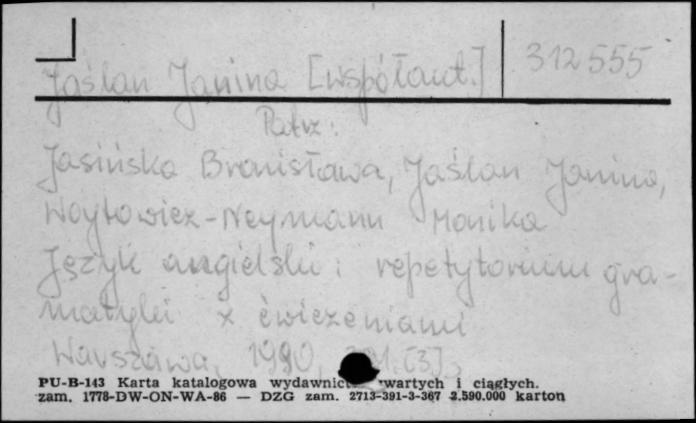 Jaślan Janina [współaut.] 312555
Patrz:
Jasińska Bronisława, Jaślan Janina,
Woytowicz-Neymann Monika
Język angielski: repetytorium gra-
matyki z ćwiczeniami
Warszawa, 1990, [3].
PU-B-143 Karta katalogowa wydawnict zwartych i ciągłych.
zam. 1778-DW-ON-WA-86 — DZG zam. 2713-391-3-367 2.590.000 karton